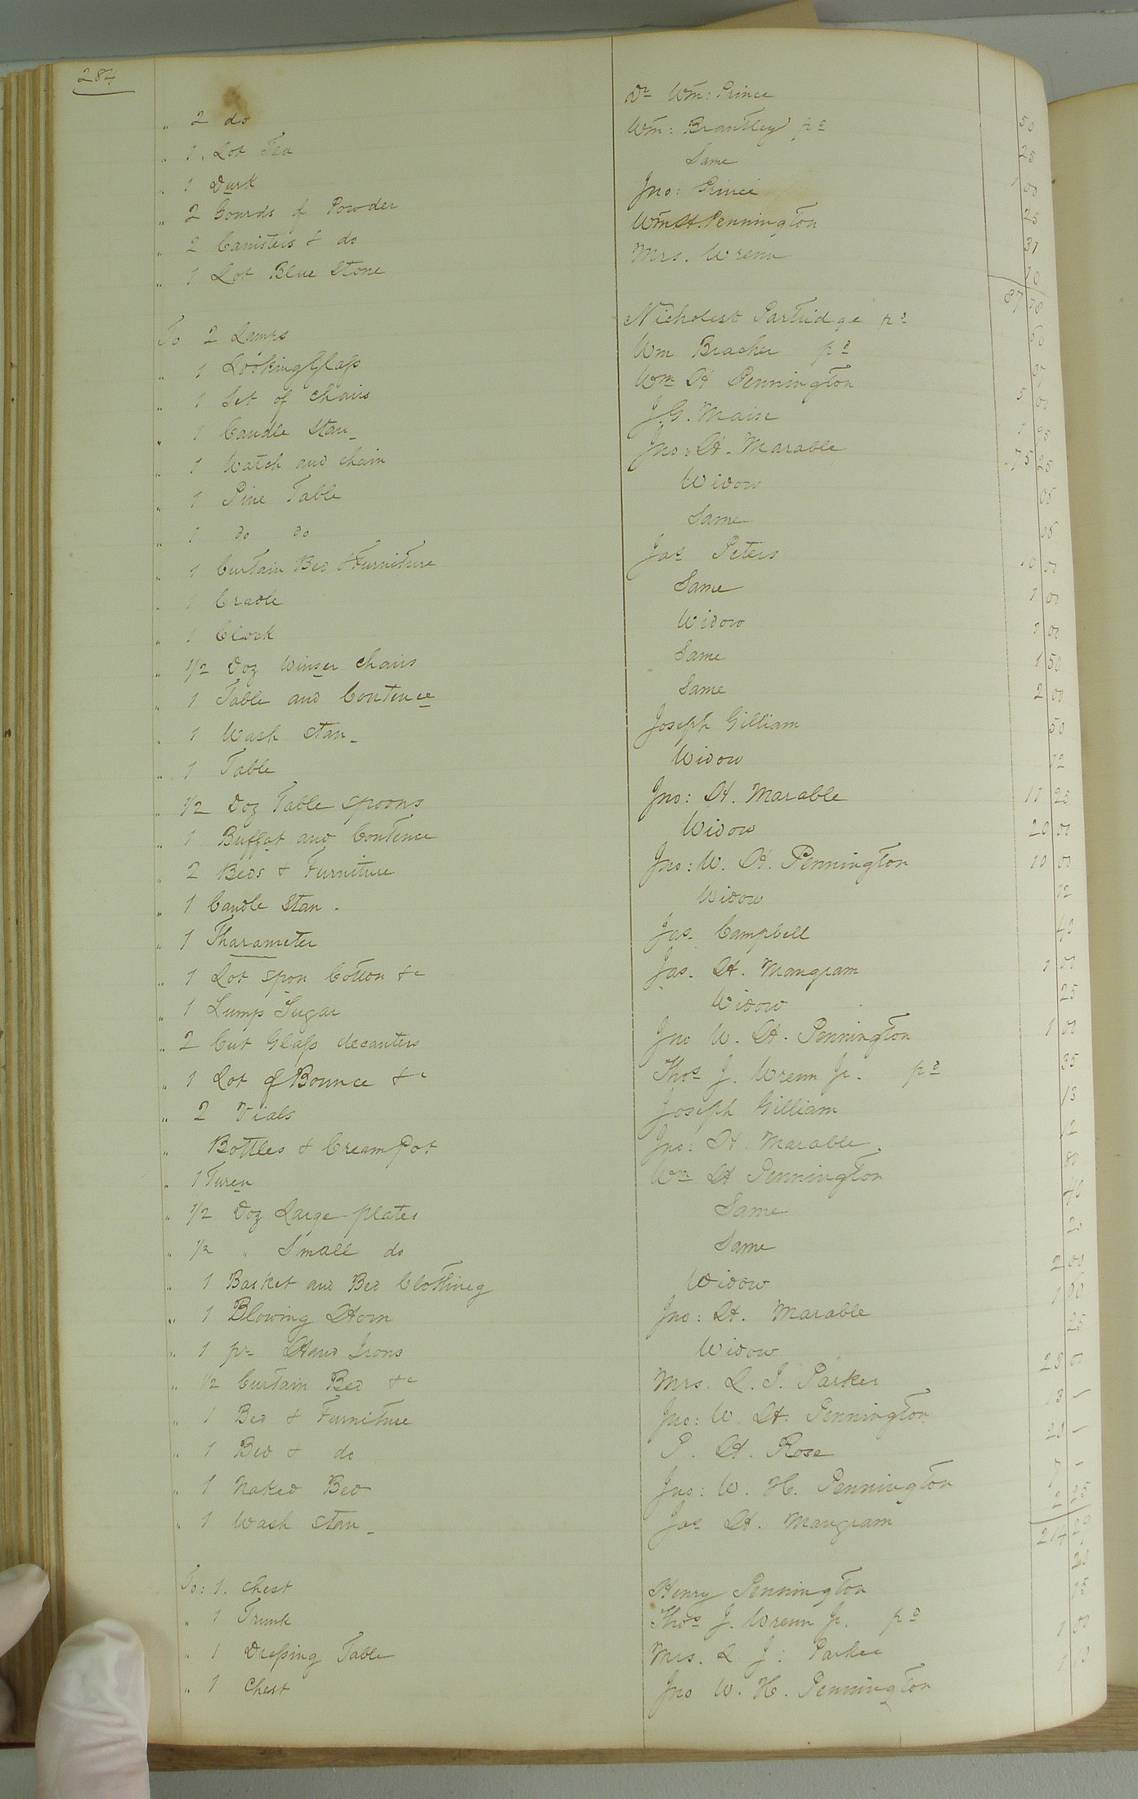 284
" 2 do Dr Wm: Prince
" 1. Lot Tea Wm: Brantley pd 50
" 1 Durk Same 25
" 2 Gourds of Powder Jno: Prince
" 2 Canisters & do Wm H. Pennington 25
" 1 Lot Blue Stone Mrs. Wrenn 31
To 2 Lamps Nicholest Partridge pd
" 1 Looking Glass Wm Bracher pd
" 1 Set of Chairs Wm H Pennington 5 00
" 1 Candle Stan_ J. G. Main
" 1 Watch and chain Jno: H. Marable 75 25
" 1 Pine Table Widow
" 1 do do Same
" 1 Curtain Bed & Furniture Jas Peters
" 1 Cradle Same 1 00
" 1 Clock Widow 00
" 1/2 Doz Winser Chairs Same 1 50
" 1 Table and Contence Same 2 00
" 1 Wash Stan_ Joseph Gilliam 50
" 1 Table Widow 12
" 1/2 Doz Table Spoons Jno: H. Marable
" 1 Buffat and Contence Widow 20 00
" 2 Beds & Furniture Jno: W. H. Pennington 10 00
" 1 Candle Stan. Widow 12
" 1 Tharameter Jas Campbell
" 1 Lot Spon Cotton &c Jas. H. Mangram
" 1 Lump Sugar Widow 25
" 2 Cut Glass decanters Jno W. H. Pennington 1 00
" 1 Lot of Bounce &c Thos J. Wrenn Jr. pd 35
" 2 Vials Joseph Gilliam 13
" Bottles & Cream Pot Jno: H. Marable. 12
" 1 Turen Wm H Pennington
" 1/2 Doz Large plates Same
" 1/2 " Small do Same
" 1 Basket and Bed Clothing Widow 2 00
" 1 Blowing Horn Jno: H. Marable
" 1 pr Hand Irons Widow 25
" 1/2 Curtain Bed &c Mrs. L. J. Parker
" 1 Bed & Furniture Jno: W. H. Pennington
" 1 Bed & do P. H. Rose
" 1 Naked Bed Jno: W. H. Pennington
" 1 Wash Stan_ Jas H. Mangram
To: 1. Chest Henry Pennington
" 1 Trunk Thos J. Wrenn Jr. pd
" 1 Dressing Table Mrs. L J: Parker
" 1 Chest Jno W. H. Pennington